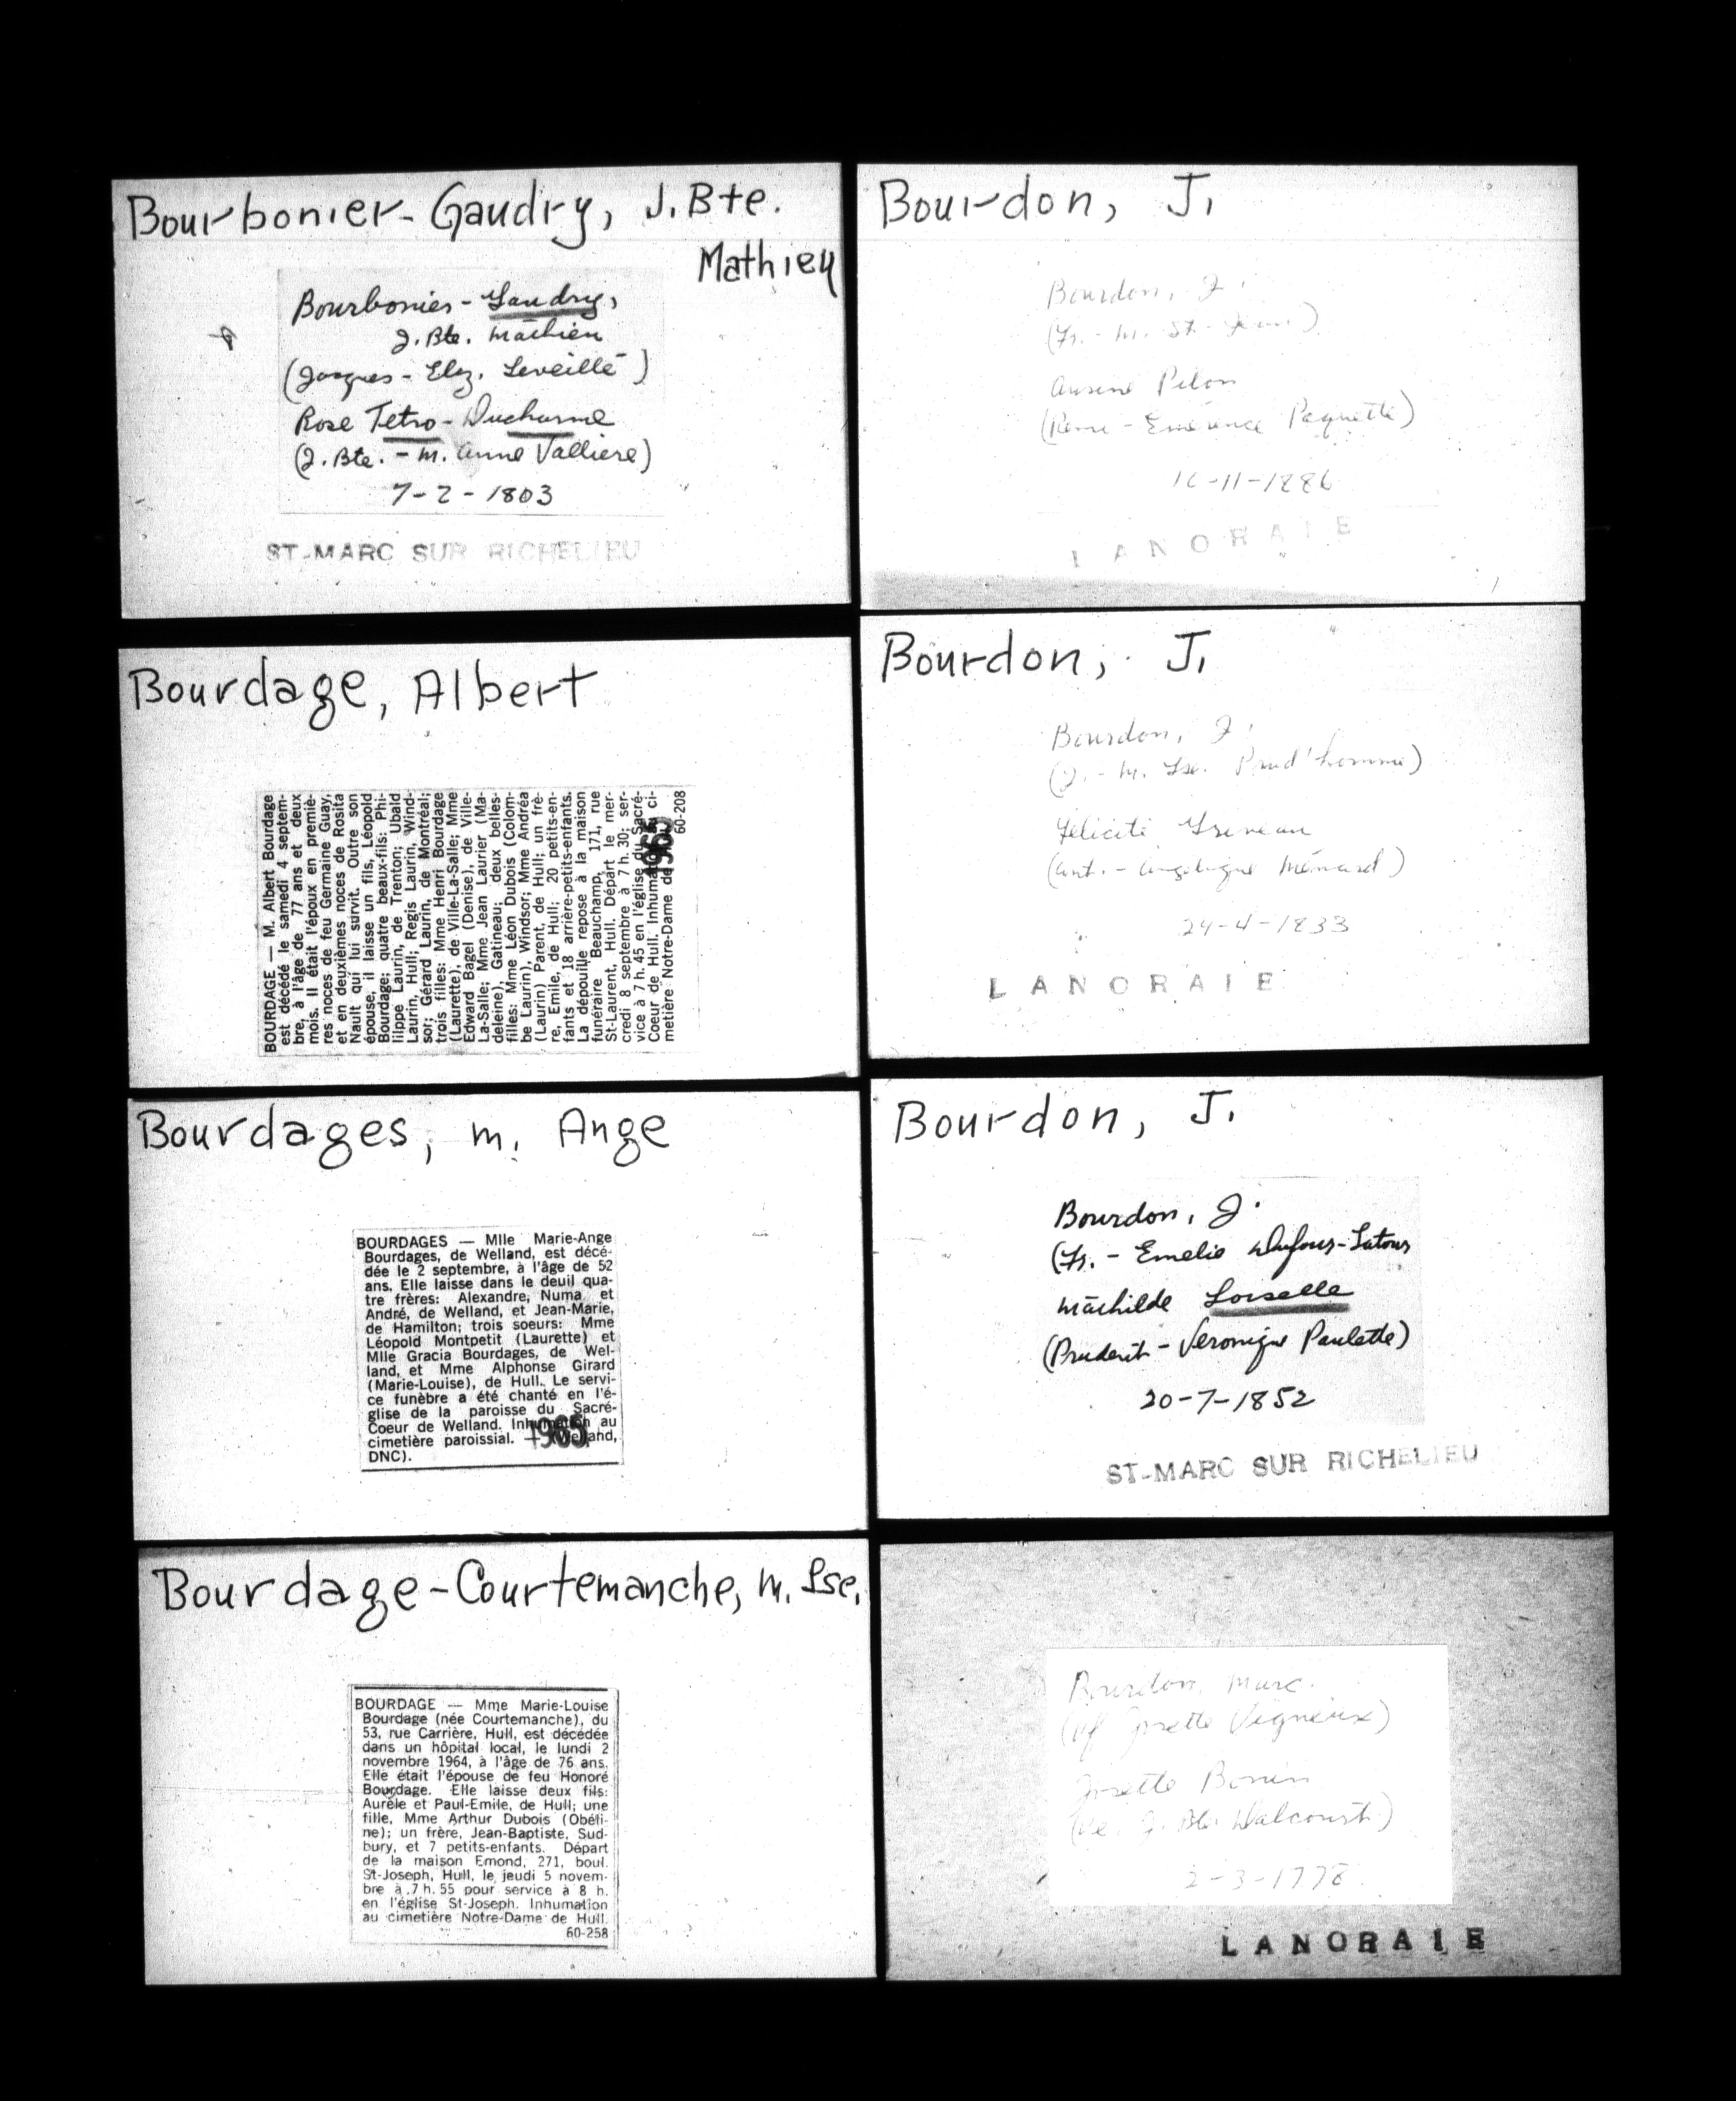 Bourbonier-Gaudry, J. Bte.
Mathieu
Bourbonier-Gaudry,
J. Bte. Mathieu
(Jacques - Elez. Leveillé)
Rose Tetro-Ducharme
(J. Bte. - M. Anne Valliere)
7-2-1803
ST-MARC SUR RICHELIEU
Bourdage, Albert
BOURDAGE — M. Albert Bourdage
est décédé le samedi 4 septem-
bre, à l'âge de 77 ans et deux
mois. Il était l'époux en premiè-
res noces de feu Germaine Guay,
et en deuxièmes noces de Rosita
Nault qui lui survit. Outre son
épouse, il laisse un fils, Léopold
Bourdage; quatre beaux-fils: Phi-
lippe Laurin, de Trenton; Ubald
Laurin, Hull; Regis Laurin, Wind-
sor; Gérard Laurin, de Montréal;
trois filles: Mme Henri Bourdage
(Laurette), de Ville-La-Salle; Mme
Edward Bagel (Denise), de Ville-
La-Salle; Mme Jean Laurier (Ma-
deleine), Gatineau; deux belles-
filles: Mme Léon Dubois (Colom-
be Laurin), Windsor; Mme Andréa
(Laurin) Parent, de Hull; un frè-
re, Emile, de Hull; 20 petits-en-
fants et 18 arrière-petits-enfants.
La dépouille repose à la maison
funéraire Beauchamp, 171, rue
St-Laurent, Hull. Départ le mer-
credi 8 septembre à 7 h. 30; ser-
vice à 7 h. 45 en l'église du Sacré-
Coeur de Hull. Inhumation au ci-
metière Notre-Dame de
60-208
1965
Bourdages, m. Ange
BOURDAGES — Mlle Marie-Ange
Bourdages, de Welland, est décé-
dée le 2 septembre, à l'âge de 52
ans. Elle laisse dans le deuil qua-
tre frères: Alexandre, Numa et
André, de Welland, et Jean-Marie,
de Hamilton; trois soeurs: Mme
Léopold Montpetit (Laurette) et
Mlle Gracia Bourdages, de Wel-
land, et Mme Alphonse Girard
(Marie-Louise), de Hull. Le servi-
ce funèbre a été chanté en l'é-
glise de la paroisse du Sacré-
Coeur de Welland. Inhumation au
cimetière paroissial. — (Welland,
DNC).
1965
Bourdage-Courtemanche, m. Lse.
BOURDAGE — Mme Marie-Louise
Bourdage (née Courtemanche), du
53, rue Carrière, Hull, est décédée
dans un hôpital local, le lundi 2
novembre 1964, à l'âge de 76 ans.
Elle était l'épouse de feu Honoré
Bourdage. Elle laisse deux fils:
Aurèle et Paul-Emile, de Hull; une
fille, Mme Arthur Dubois (Obéli-
ne); un frère, Jean-Baptiste, Sud-
bury, et 7 petits-enfants. Départ
de la maison Emond, 271, boul.
St-Joseph, Hull, le jeudi 5 novem-
bre à 7 h. 55 pour service à 8 h.
en l'église St-Joseph. Inhumation
au cimetière Notre-Dame de Hull.
60-258
Bourdon, J.
Bourdon, J.
(Fr. - M. St-Jean)
Pelon
(Remi - Emérence Paquette)
-11-1886
LANORAIE
Bourdon, J.
Bourdon, J.
(J. - M. Lse. Prud'homme)
Félicité
(Ant. - Angélique Ménard)
24-4-1833
LANORAIE
Bourdon, J.
Bourdon, J.
(Fr. - Emelie Dufour-Latour
Mathilde Loiselle
(Prudent - Veronique Paulette)
20-7-1852
ST-MARC SUR RICHELIEU
Bourdon, Marc.
(vf Josette Vigneux)
Josette Bonin
(Ve. J. Bte. Dalcourt)
2-3-1778
LANORAIE